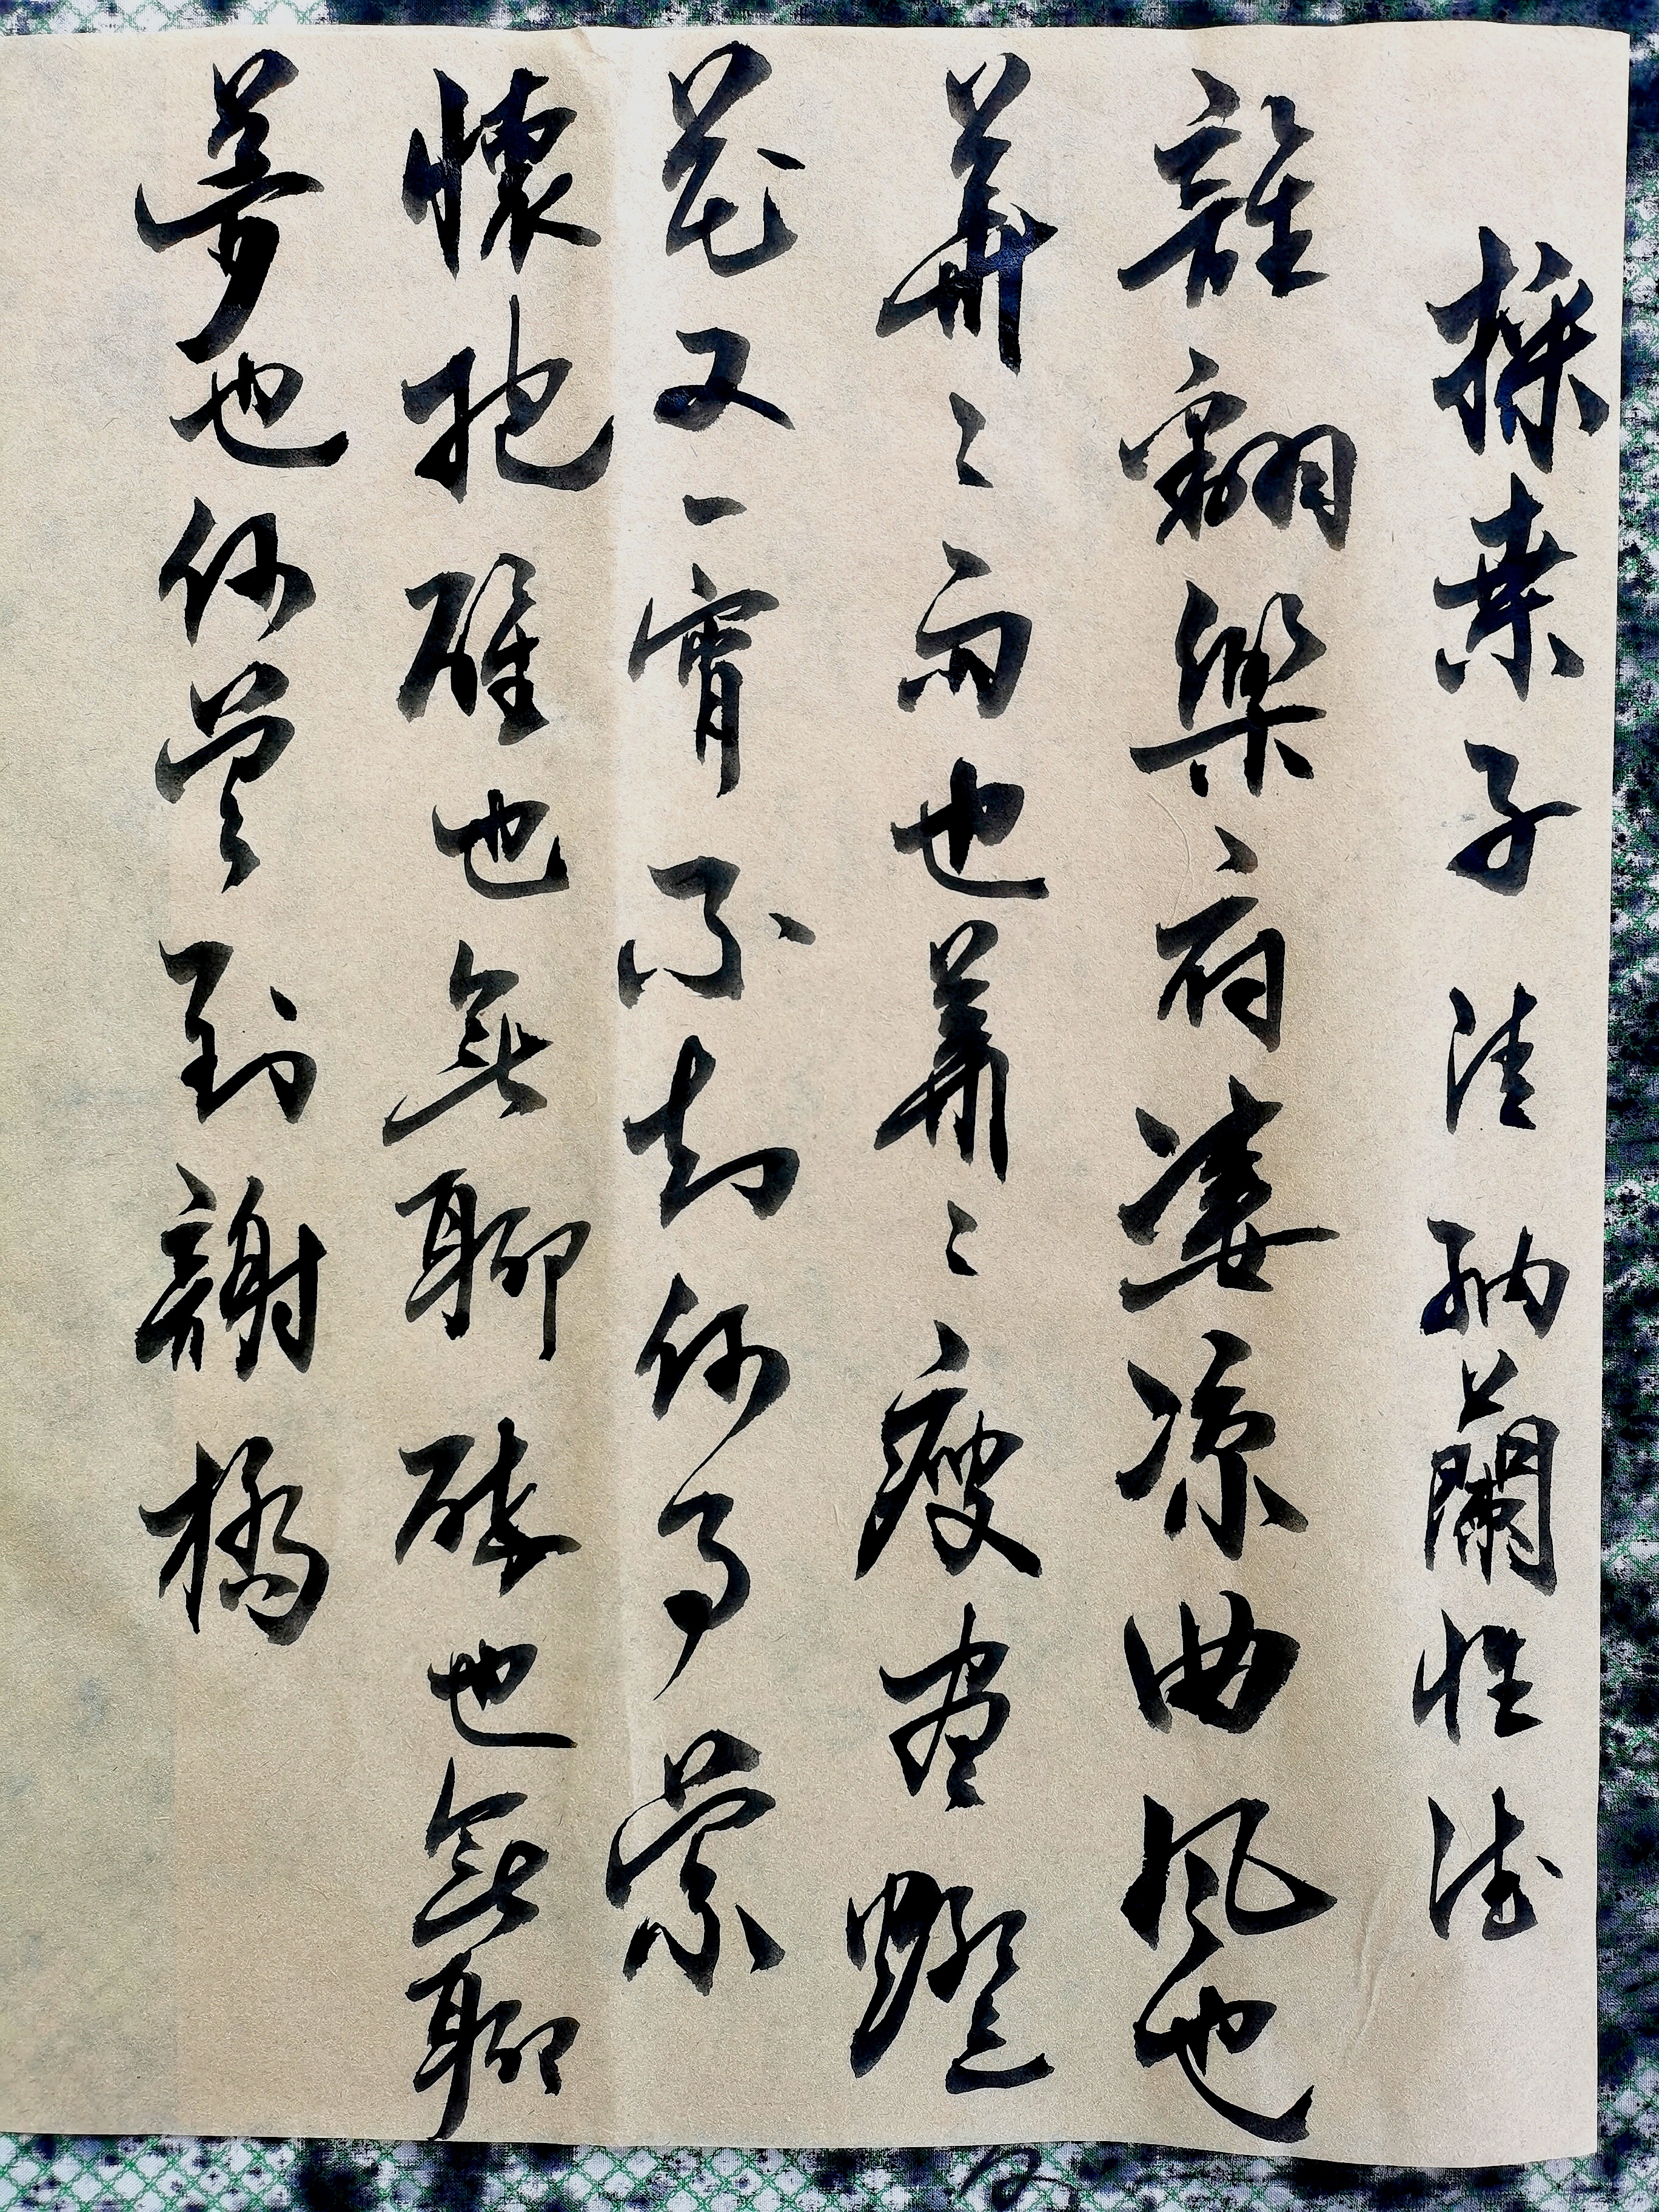 採桑子 清 納蘭性德
誰翻樂府凄凉曲風也
蕭々雨也蕭々瘦盡燈
花又一宵不知何事縈
懷抱醒也無聊醉也無聊
夢也何曾到謝橋